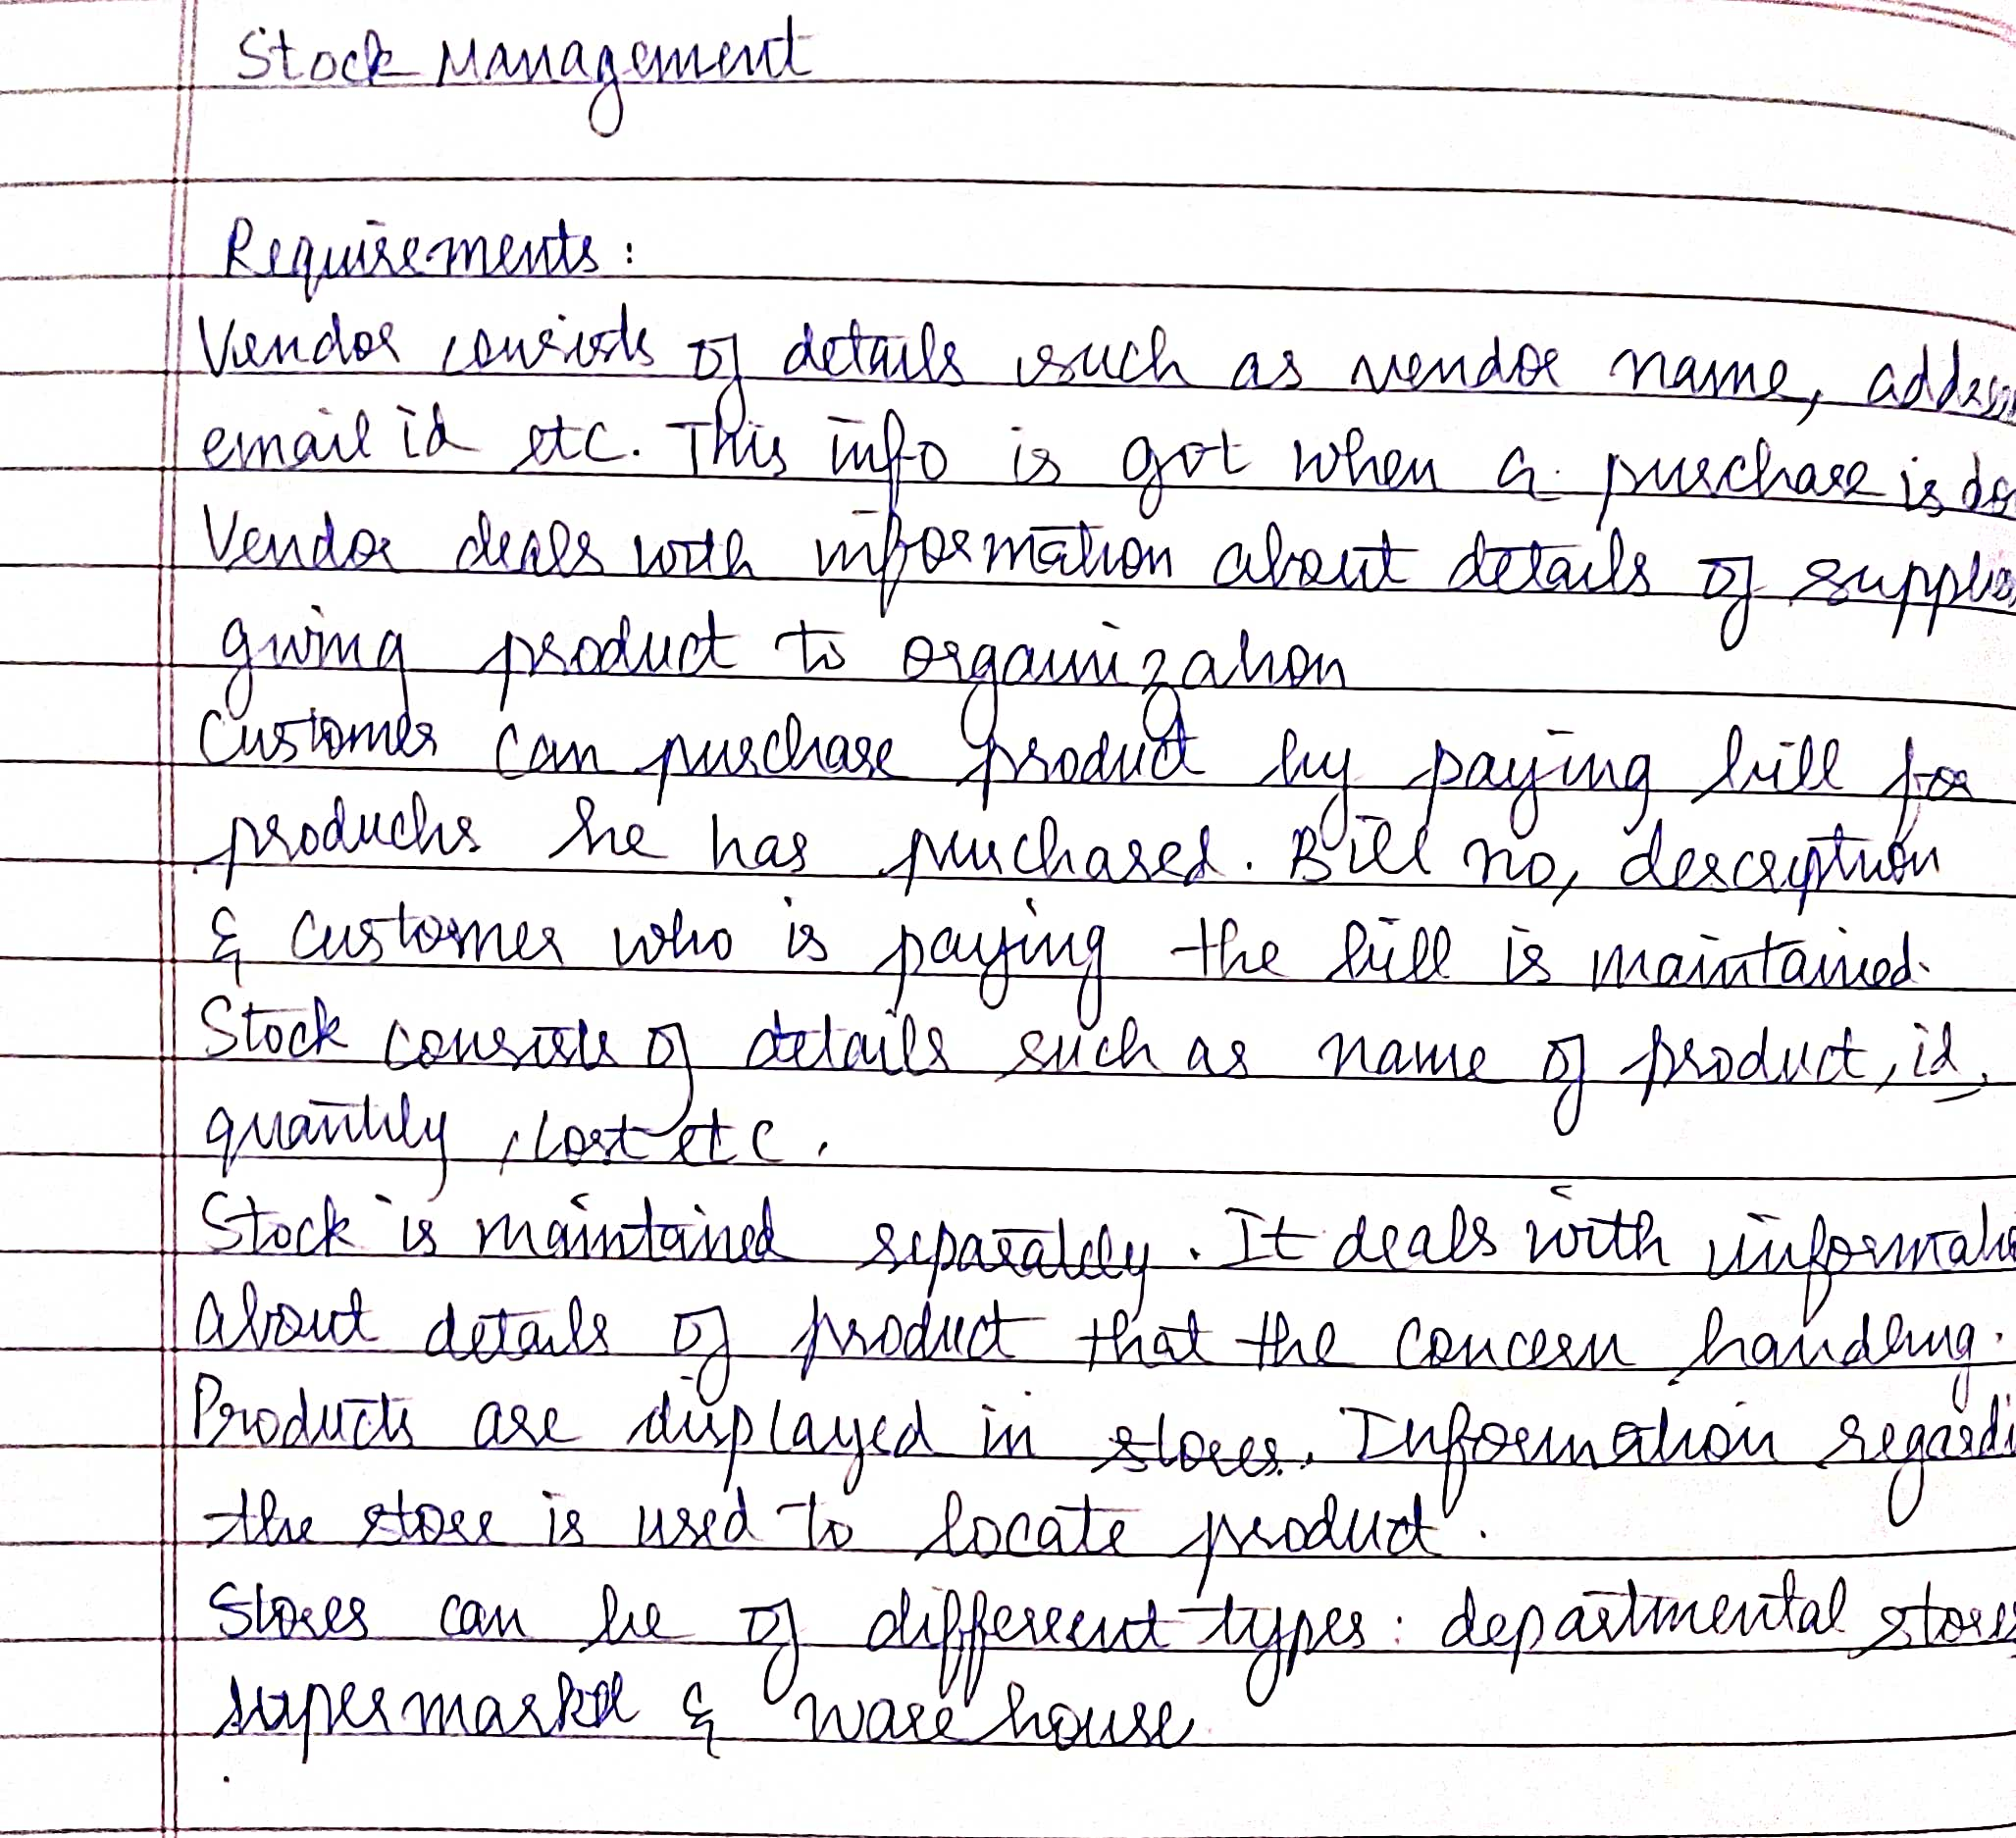 Stock Management
Requirements:
Vendor consists of details such as vendor name,
email id etc. This info is got when a purchase is
Vendor deals with information about details of
giving product to organization
Customer can purchase product by paying bill for
products he has purchased. Bill no, description
& customer who is paying the bill is maintained.
Stock consists of details such as name of product, id,
quantity, cost etc.
Stock is maintained separately. It deals with
about details of product that the concern handling.
Products are displayed in stores. Information
the store is used to locate product.
Stores can be of different types: departmental
supermarket & warehouse